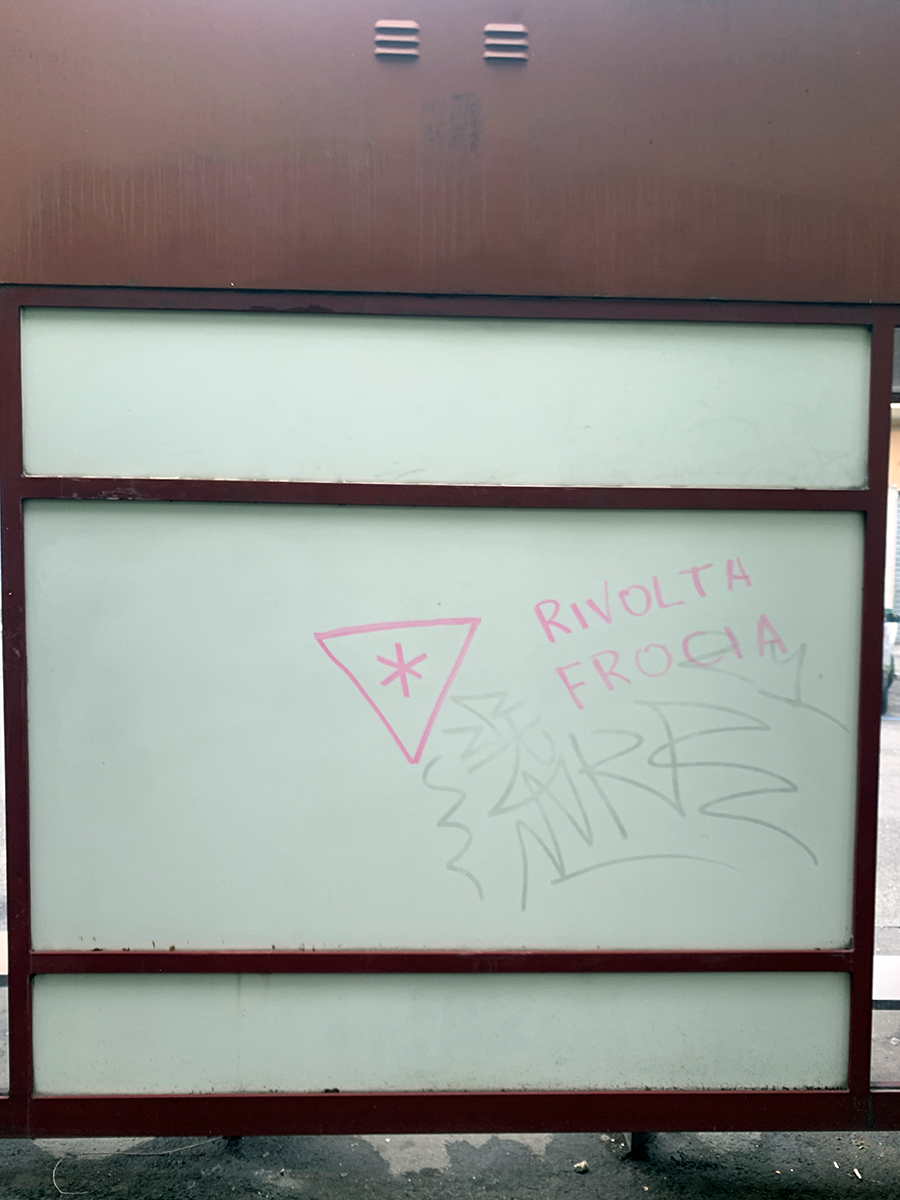 *
RIVOLTA
FROCIA